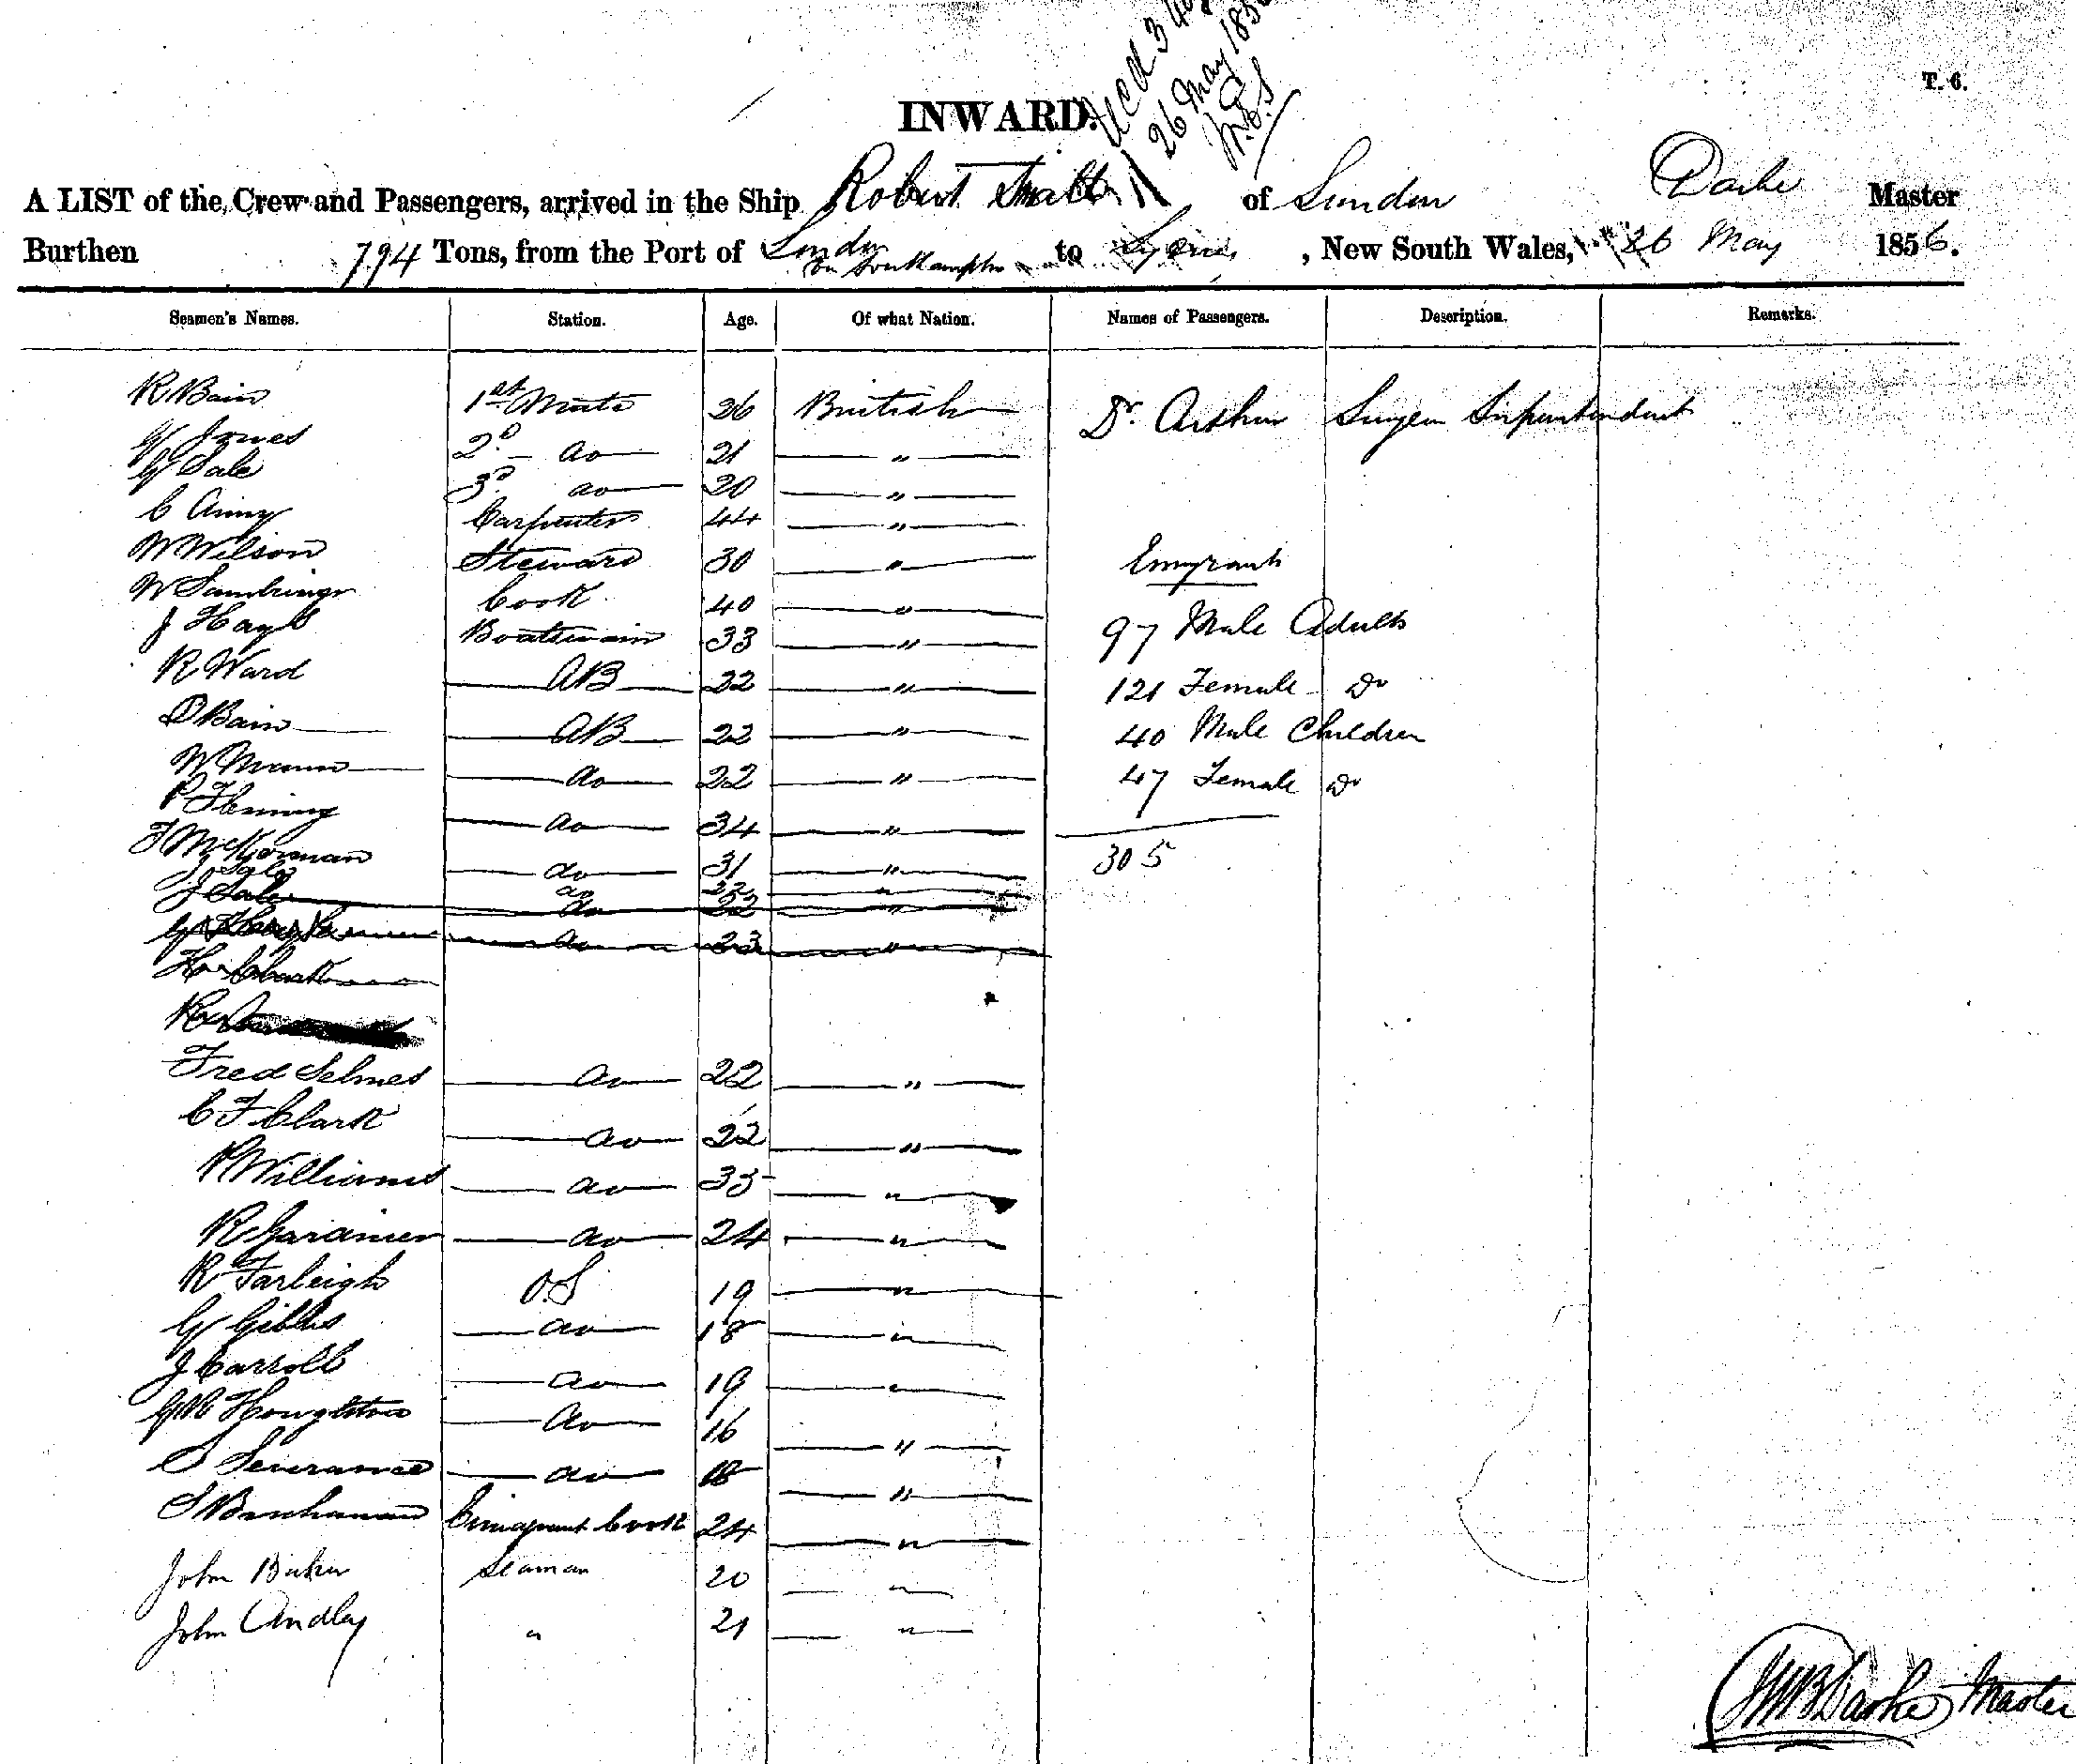 T. 6.
26 May 185
INWARD.
A LIST of the Crew and Passengers, arrived in the Ship Robert Small of London Darke Master
Burthen 794 Tons, from the Port of London via Southampton to Sydney, New South Wales, 26 May 1856.
Seamen's Names. Station. Age. Of what Nation. Names of Passengers. Description. Remarks.
R Bain 1st Mate 26 British Dr. Arthur Surgeon Superintendent
G Jones 2d do 21 "
G Sale 3d do 20 "
C Carpenter 44 "
W Wilson Steward 30 " Emigrants
W Cook 40 "
J Boatswain 33 " 97 Male Adults
R Ward AB 22 " 121 Female Do
D Bain AB 22 " 40 Male Children
W Mann do 22 " 47 Female Do
P do 34 "
F McKorman do 31 " 305
J Sale do 22 "
J Sale do 22 "
G do 23 "
H Clark
Fred Selmes do 22 "
C F Clark do 22 "
P Williams do 35 "
R Gardiner do 24 "
R Farleigh O.S 19 "
G Gibbs do 18 "
J Carroll do 19 "
Houghton do 16 "
S Severance do 18 "
S Buchanan Emigrant Cook 24 "
John Baker Seaman 20 "
John Andley " 21 "
Darke Master